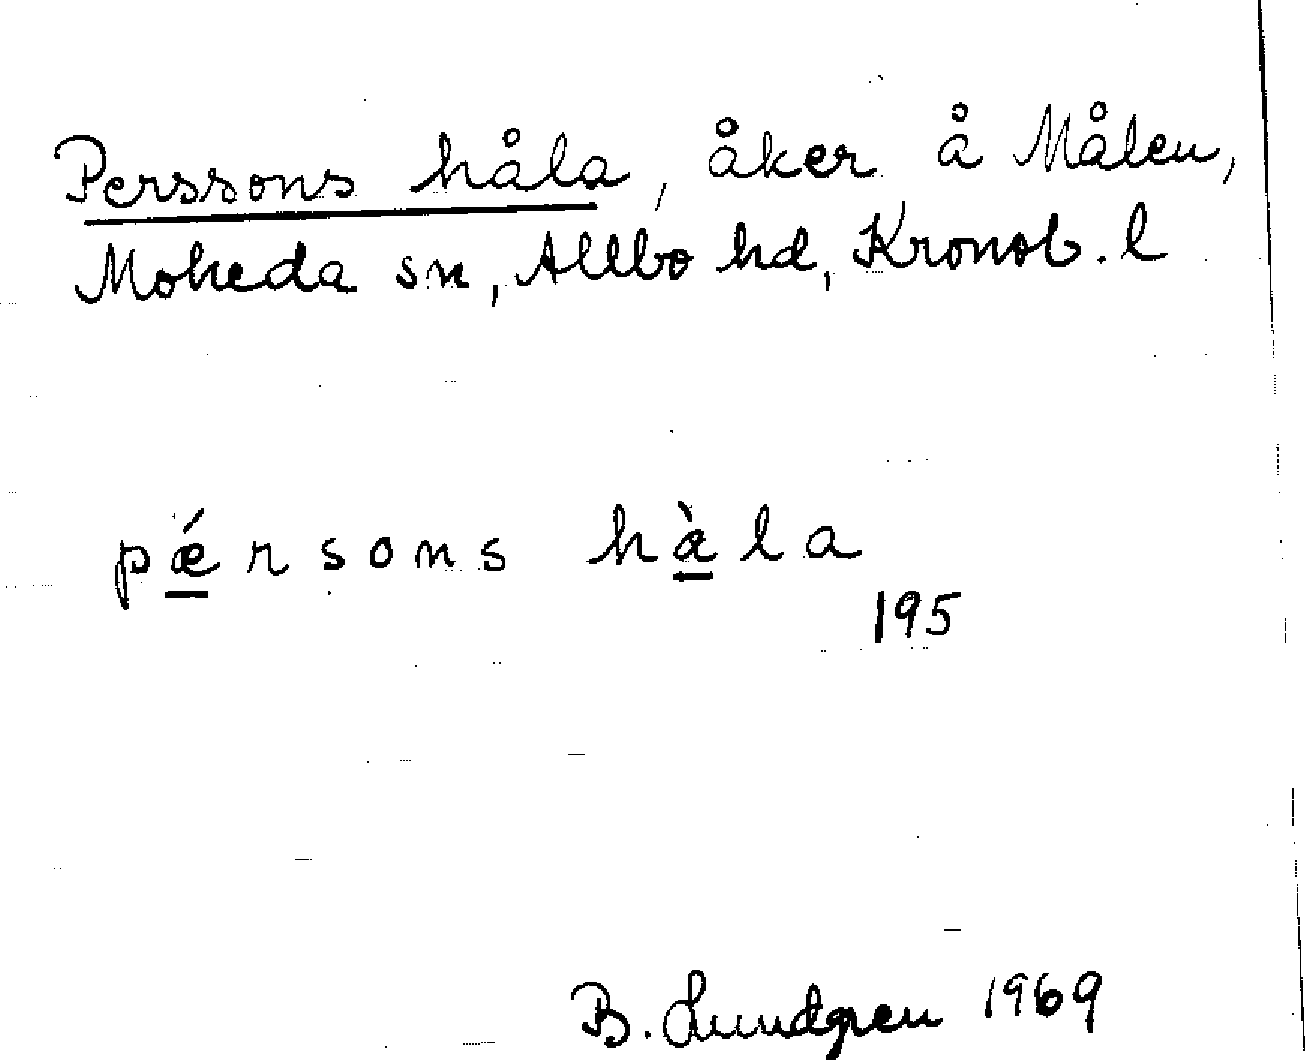 Perssons håla, åker å Målen,
Moheda sn, Allbo hd, Kronob. l
pǽrsons hàla
195
B. Lundgren 1969